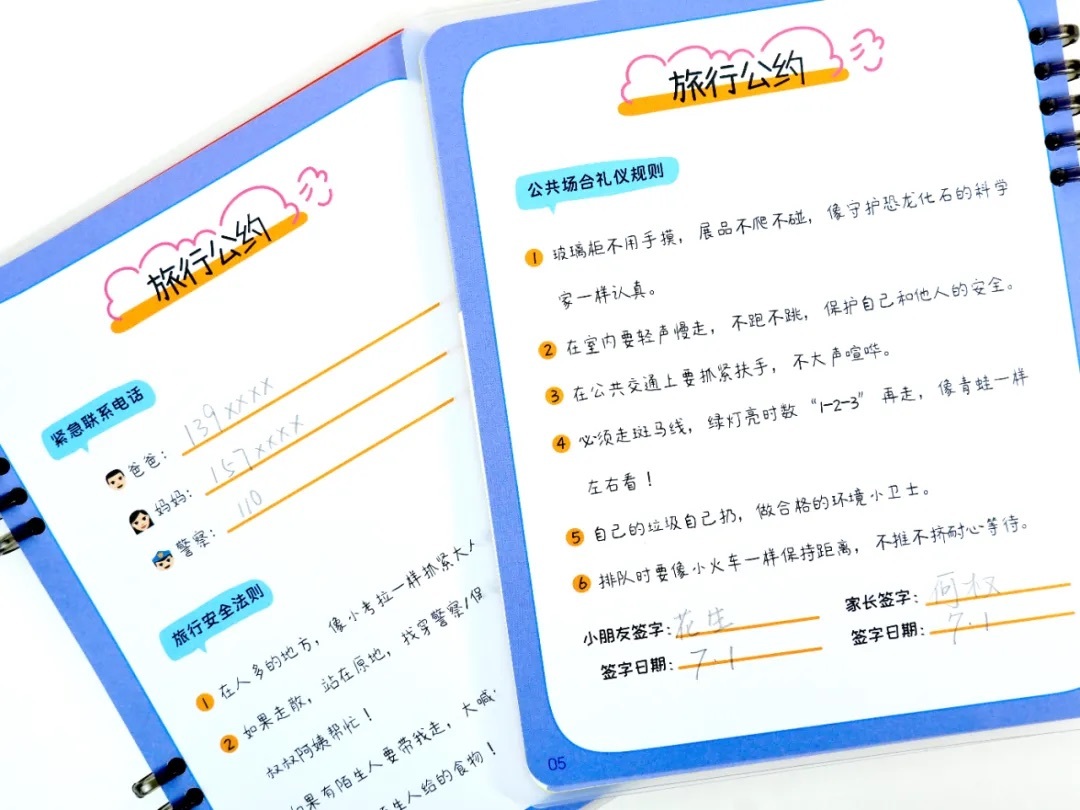 旅行公约
紧急联系电话
爸爸：139xxxx
妈妈：157xxxx
警察：110
旅行安全法则
1 在人多的地方，像小考拉一样抓紧大人
2 如果走散，站在原地，找穿警察/保
叔叔阿姨帮忙！
如果有陌生人要带我走，大喊
生人给的食物！
旅行公约
公共场合礼仪规则
1 玻璃柜不用手摸，展品不爬不碰，像守护恐龙化石的科学
家一样认真。
2 在室内要轻声慢走，不跑不跳，保护自己和他人的安全。
3 在公共交通上要抓紧扶手，不大声喧哗。
4 必须走斑马线，绿灯亮时数“1-2-3”再走，像青蛙一样
左右看！
5 自己的垃圾自己扔，做合格的环境小卫士。
6 排队时要像小火车一样保持距离，不推不挤耐心等待。
小朋友签字：花生
家长签字：
签字日期：7.1
签字日期：7.1
05